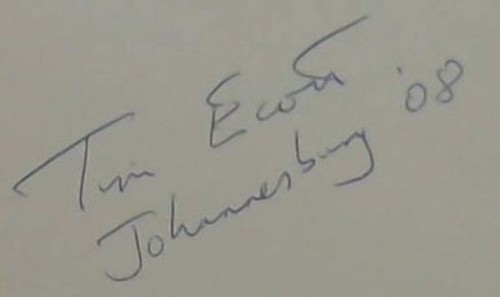 Tim Ecott
Johannesburg '08